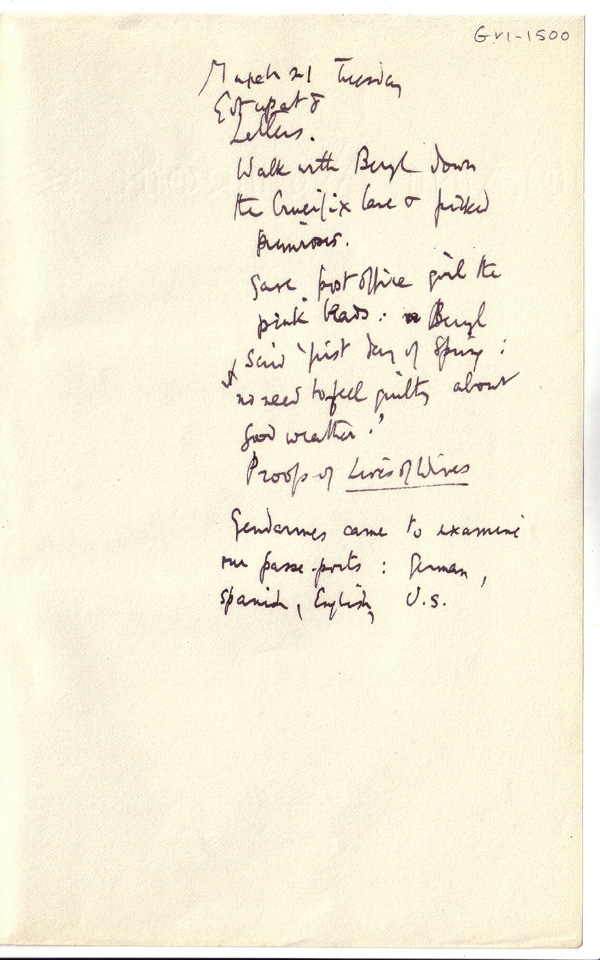 GVI-1500
March 21 Tuesday
Got up at 8
Letters.
Walk with Beryl down
the Crucifix lane & picked
primroses.
Gave post office girl the
pink beads. Beryl
said 'first day of Spring:
no need to feel guilty about
good weather.'
Proofs of Lives of Wives
Gendarmes came to examine
our passe-ports: German,
Spanish, English, U.S.